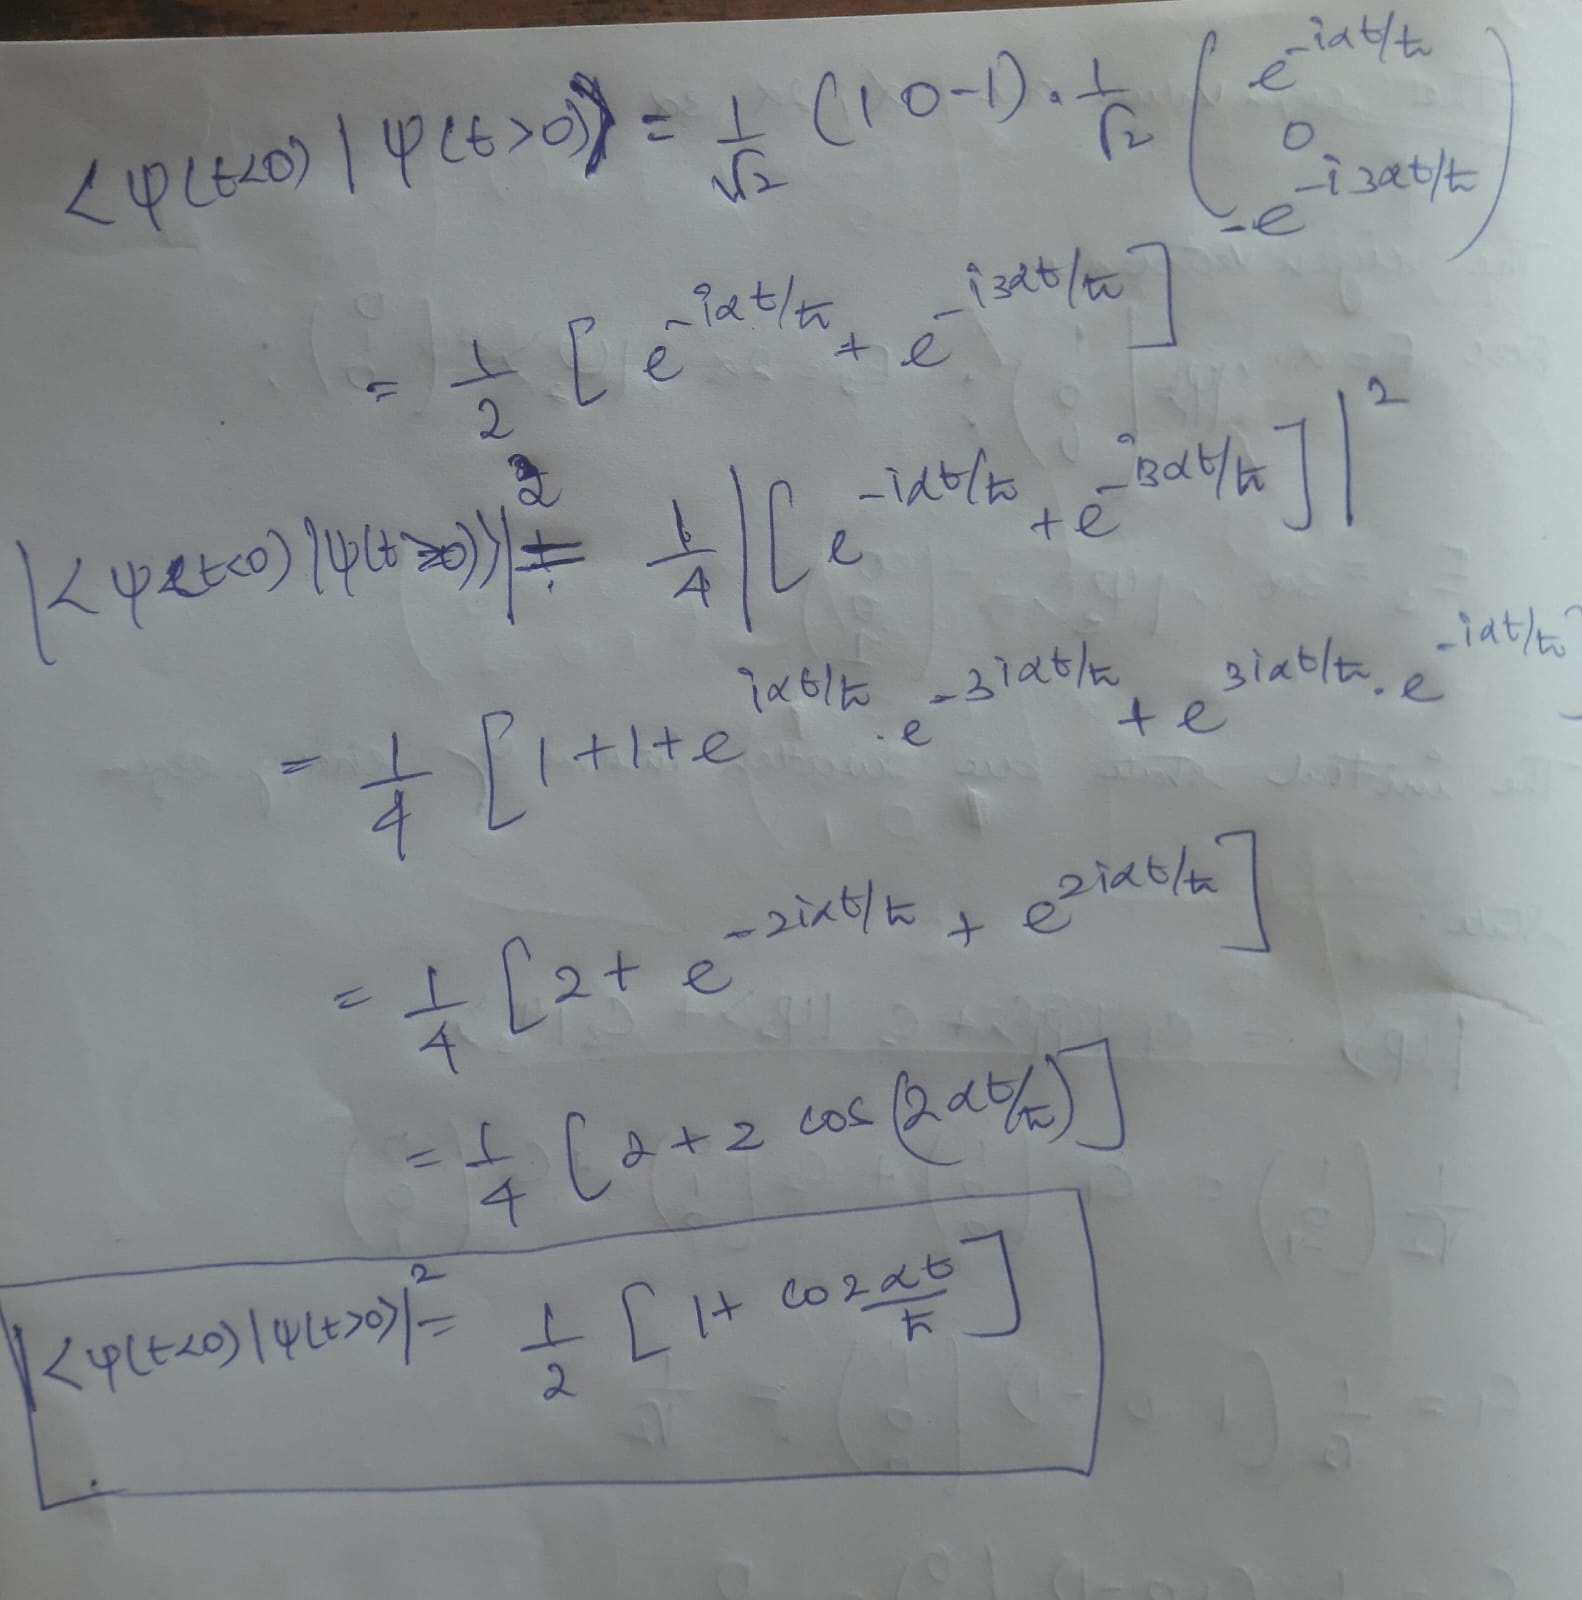 <ψ(t<0) | ψ(t>0)> = 1/√2 (1 0 -1) · 1/√2 ( e^{-iαt/ħ} 0 -e^{-i3αt/ħ} )
= 1/2 [ e^{-iαt/ħ} + e^{-i3αt/ħ} ]
|<ψ(t<0) | ψ(t>0)>|^2 = 1/4 | [ e^{-iαt/ħ} + e^{-i3αt/ħ} ] |^2
= 1/4 [ 1+1+e^{iαt/ħ} · e^{-3iαt/ħ} + e^{3iαt/ħ} · e^{-iαt/ħ} ]
= 1/4 [ 2 + e^{-2iαt/ħ} + e^{2iαt/ħ} ]
= 1/4 [ 2 + 2 cos (2αt/ħ) ]
|<ψ(t<0) | ψ(t>0)>|^2 = 1/2 [ 1 + co 2αt/ħ ]